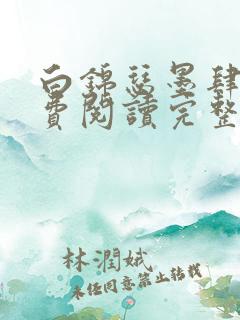 白錦瑟墨肆
費閱讀完整
林潤娥
未任同意禁止轉載